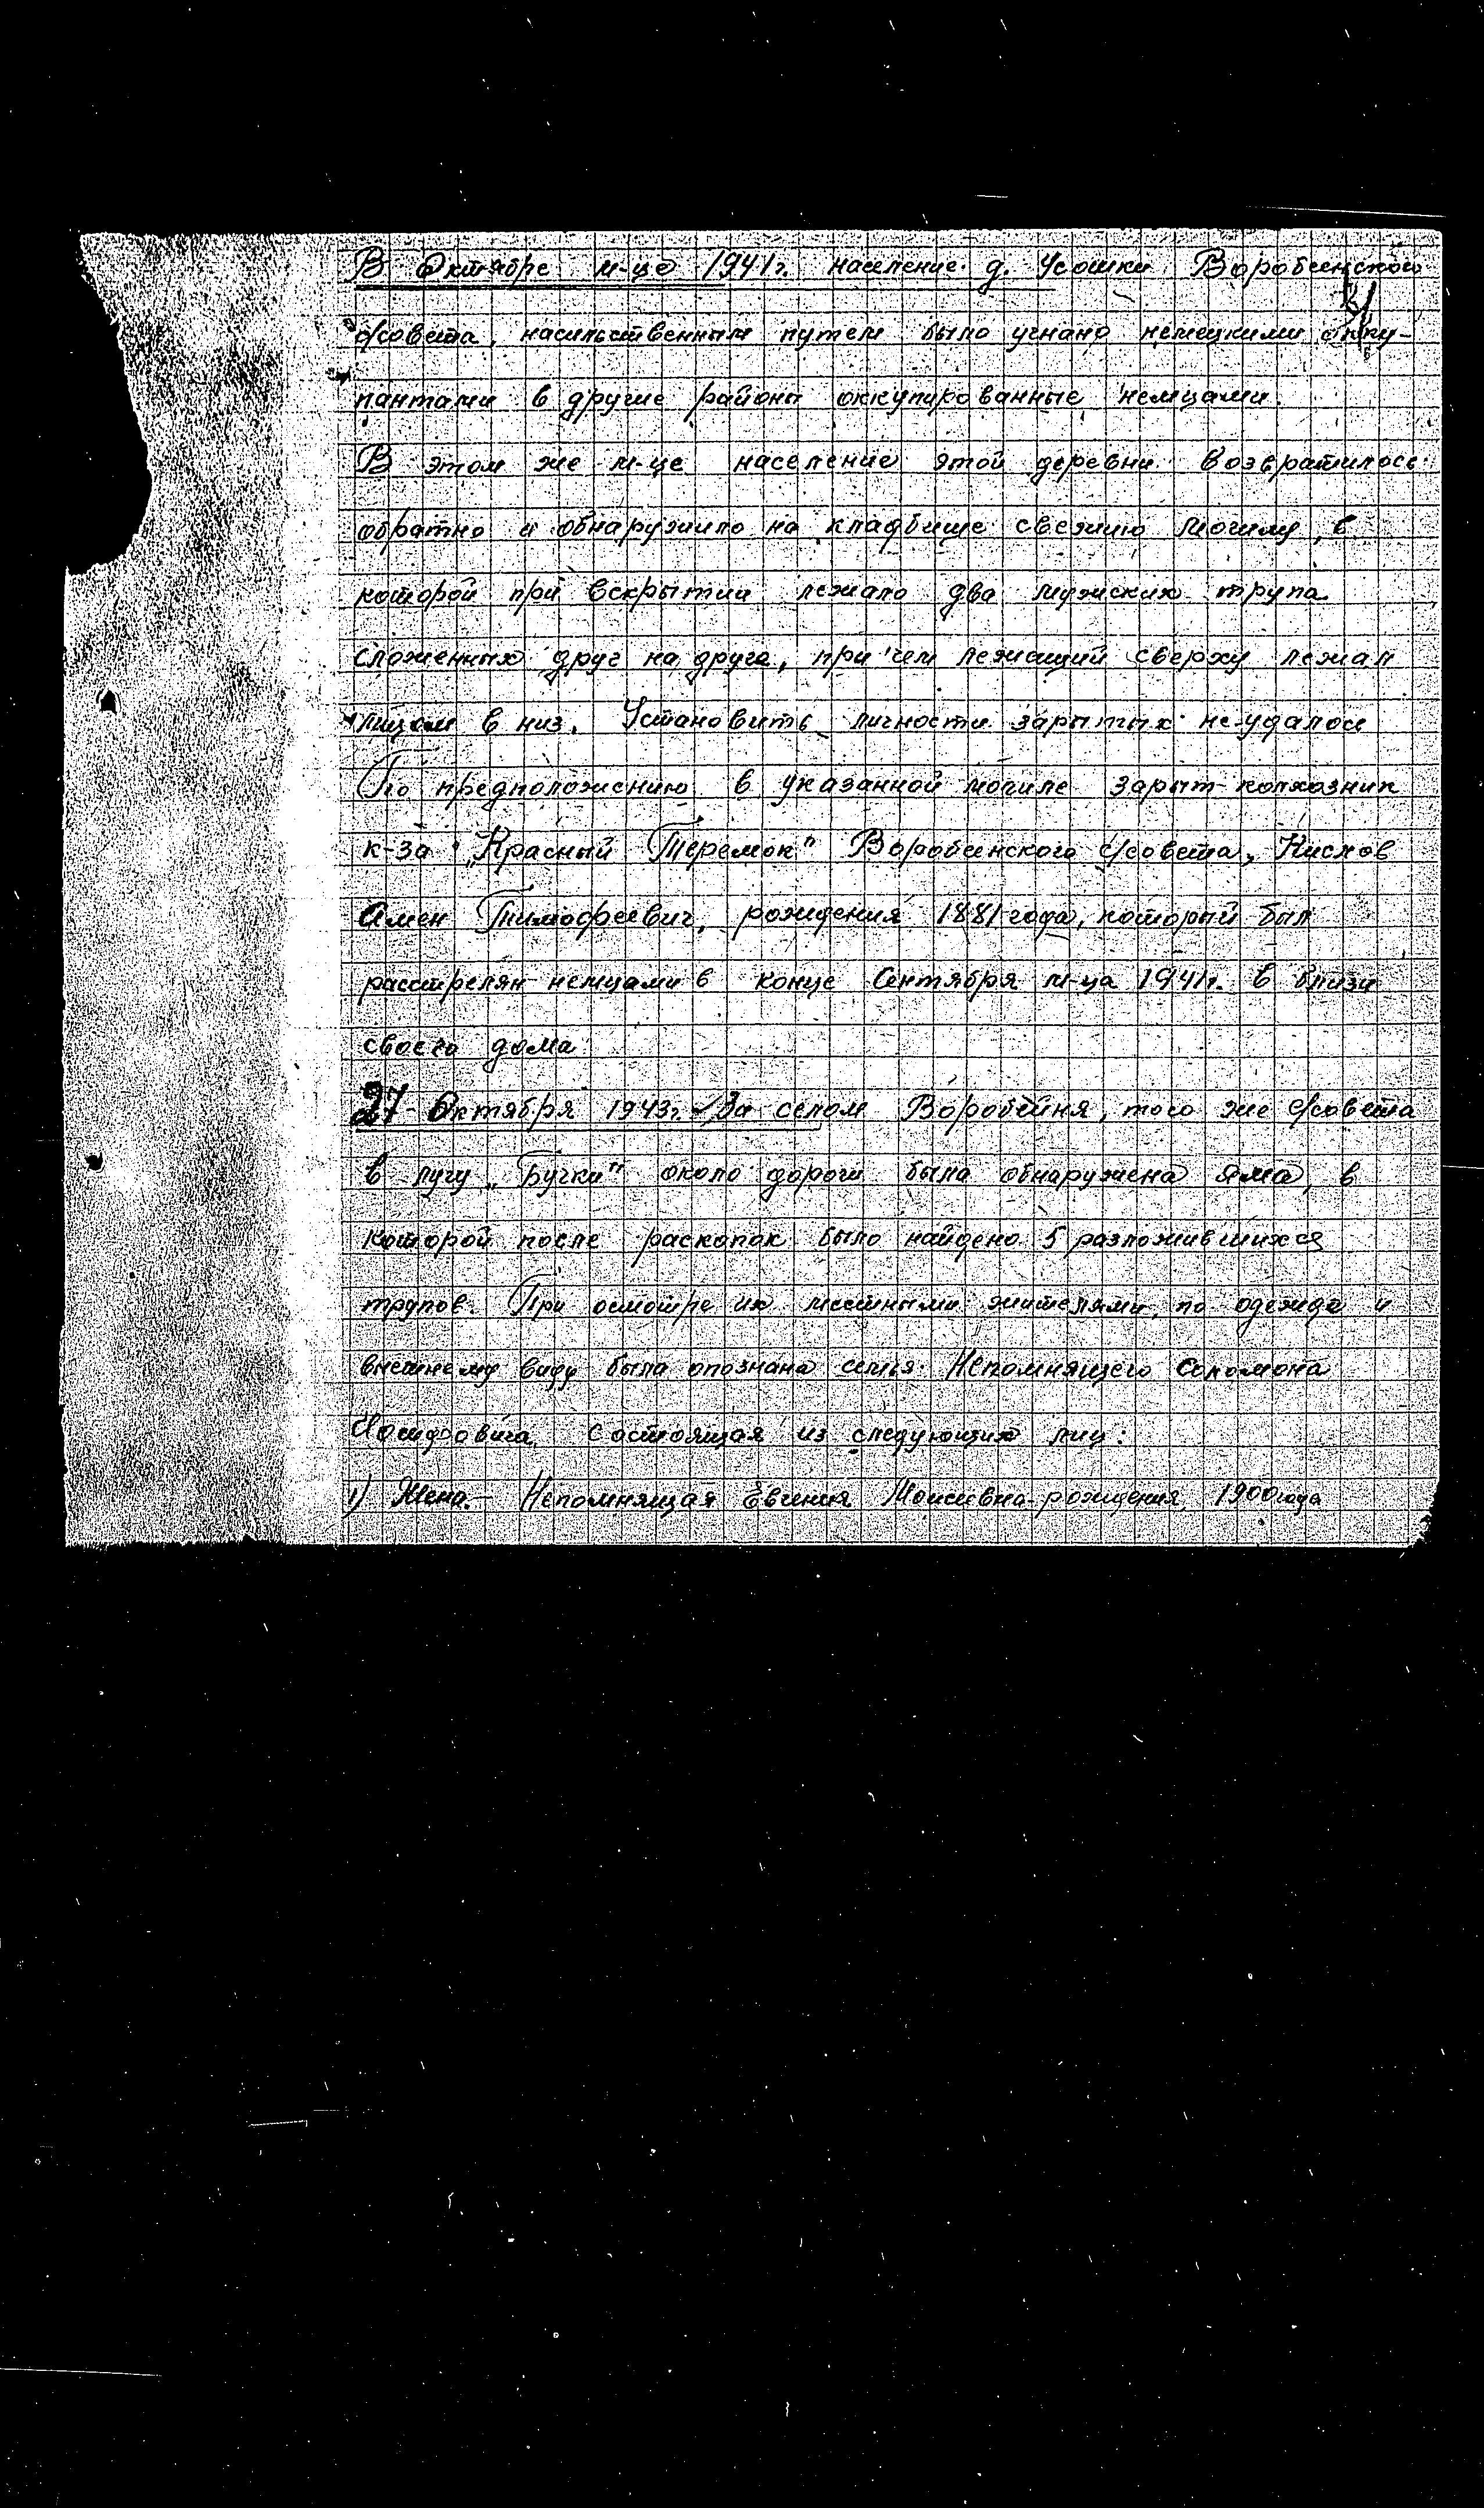 В Октябре м-це 1941г. население д. Усошки Воробеинского
с/совета, насильственным путем было угнано немецкими окку-
пантами в другие районы оккупированные немцами.
В этом же м-це население этой деревни возвратилось
обратно и обнаружило на кладбище свежию могилу, в
которой при вскрытии лежало два мужских трупа
сложенных друг на друга, при чем лежащий сверху лежал
лицом в низ. Установить личности зарытых не удалось
По предположению в указанной могиле зарыт колхозник
к-за "Красный Теремок" Воробеинского с/совета, Кислов
Амен Тимофеевич, рождения 1881 года, который был
расстрелян немцами в конце Сентября м-ца 1941г. в близи
своего дома
27 - Октября 1943г. За селом Воробейня, того же с/совета
в лугу "Бучки" около дороги была обнаружена яма, в
которой после раскопок было найдено 5 разложившихся
трупов. При осмотре их местными жителями, по одежде и
внешнему виду была опознана семья Непомнящего Соломона
Иосифовича состоящая из следующих лиц:
1) Жена - Непомнящая Евгения Моисеевна рождения 1900 года